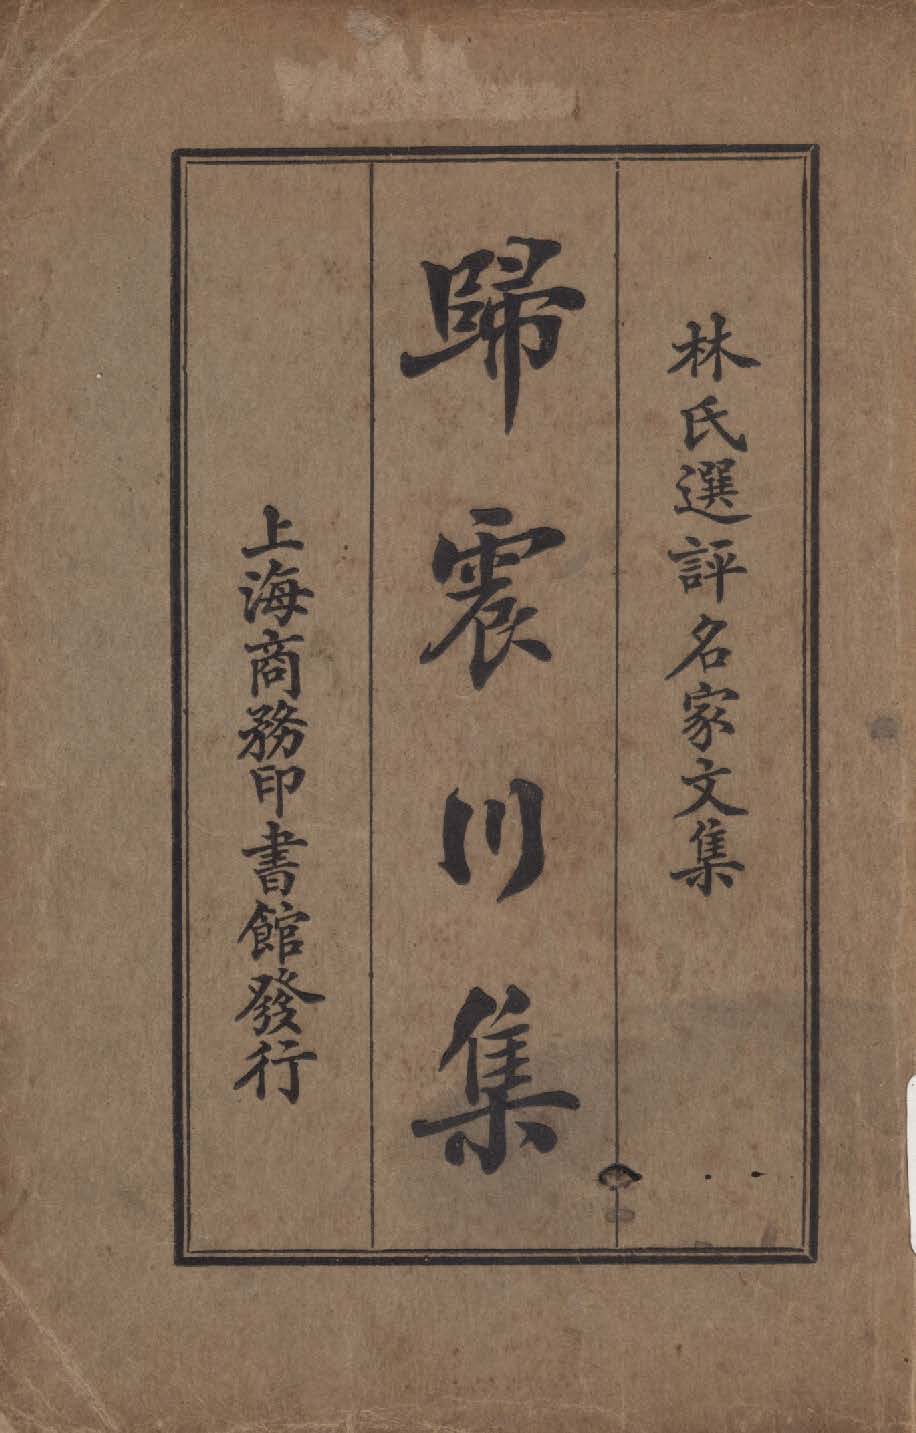 林氏選評名家文集
歸震川集
上海商務印書館發行